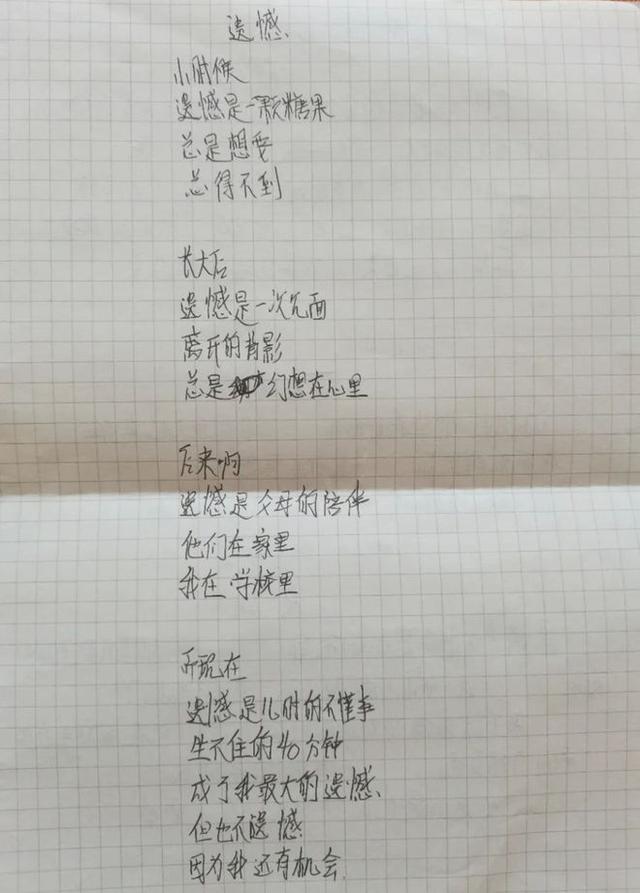 遗憾
小时候
遗憾是一颗糖果
总是想要
总得不到
长大后
遗憾是一次见面
离开的背影
总是幻想在心里
后来啊
遗憾是父母的陪伴
他们在家里
我在学校里
而现在
遗憾是儿时的不懂事
坐不住的40分钟
成了我最大的遗憾
但也不遗憾
因为我还有机会